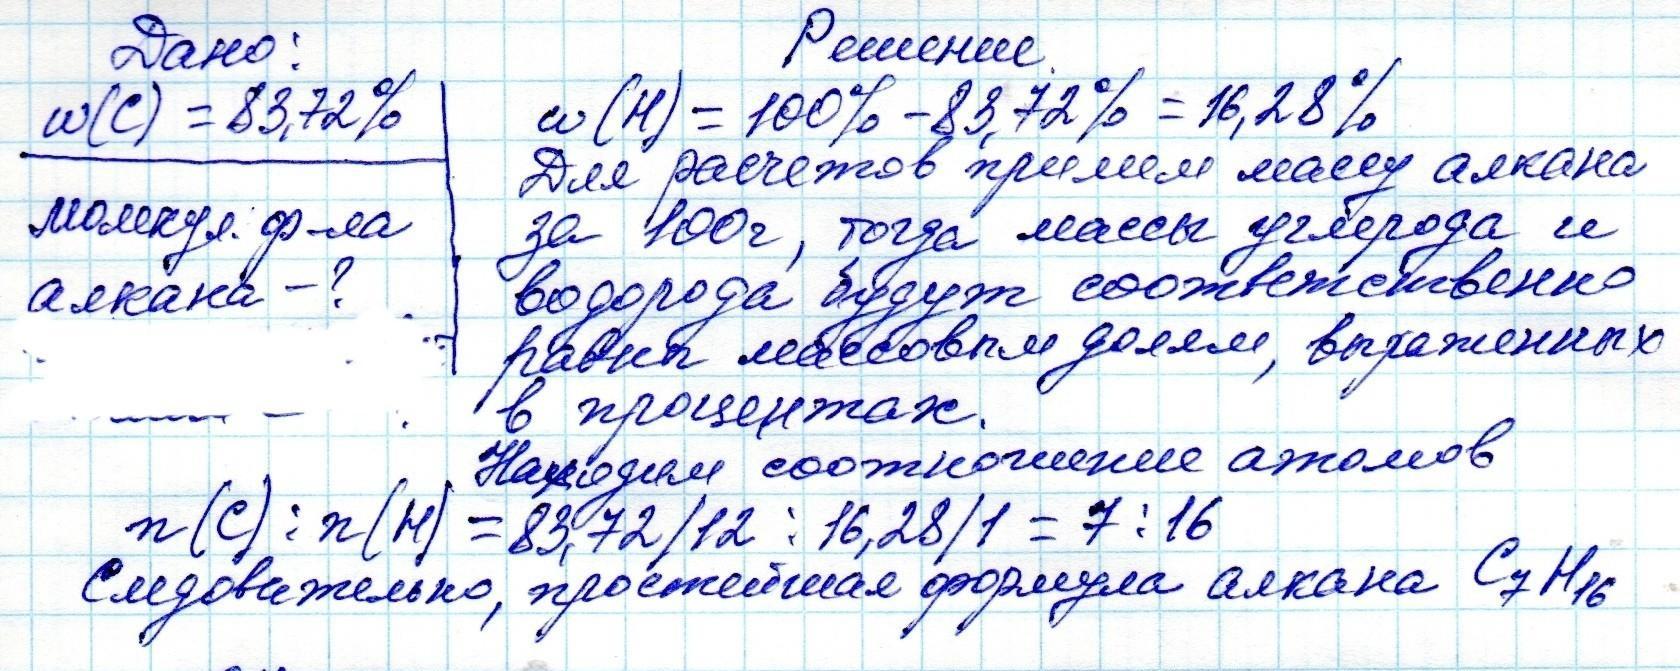 Дано:
Решение.
w(C) = 83,72%
w(H) = 100% - 83,72% = 16,28%
Для расчетов примем массу алкана
молекул. ф-ла
за 100г, тогда массы углерода и
алкана - ?
водорода будут соответственно
равны массовым долям, выраженных
в процентах.
Находим соотношение атомов
n(C) : n(H) = 83,72/12 : 16,28/1 = 7 : 16
Следовательно, простейшая формула алкана C₇H₁₆